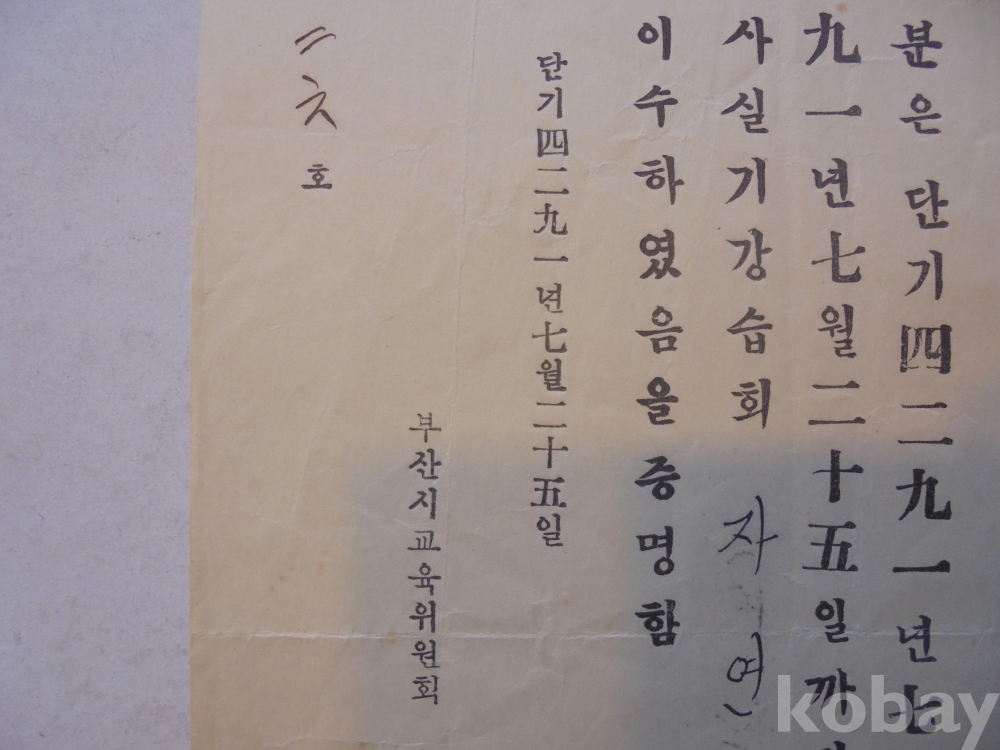 분은 단기四二九一년七
九一년七월二十五일까
사실기강습회 자여
이수하였음을증명함
단기四二九一년七월二十五일
부산시교육위원회
호
kobay